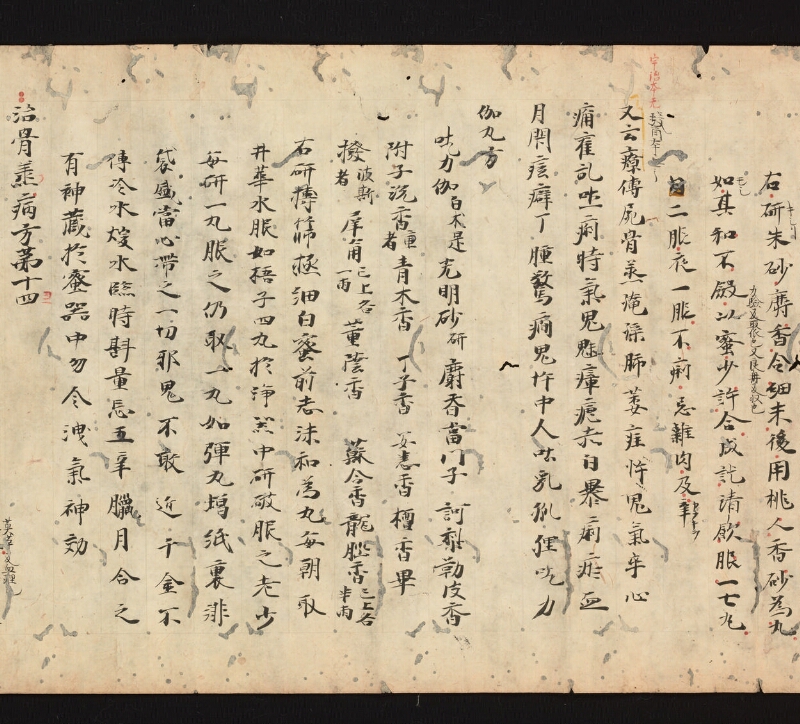 右研朱砂麝香令細末後用桃人香砂為丸
如其和不叚以蜜少許合成訖清飲服一七丸
二服夜一服不痢忌雜肉及
又云療傳屍骨蒸殗殜肺萎疰忤鬼氣卒心
痛霍乱吐痢時氣鬼魅瘴瘧赤白暴痢瘀血
月閇痃癖丁腫驚癇鬼忤中人吐乳狐狸吃力
伽丸方
吃力伽白术是 光明砂研 麝香當門子 訶梨勒皮 香
附子 沉香重者 青木香 丁子香 安悉香 檀香 蓽
撥波斯者 犀角已上各一兩 薰陸香 蘇合香 龍脳香已上各半兩
右研擣篩極細白蜜煎去沫和為丸每朝取
井華水服如梧子四丸於淨器中研破服之老少
每研一丸服之仍取一丸如彈丸蝋紙裏緋
袋盛當心帶之一切邪鬼不敢近千金不
傳冷水煖水臨時斟量忌五辛臘月合之
有神藏於蜜器中勿令洩氣神効
治骨蒸病方第十四